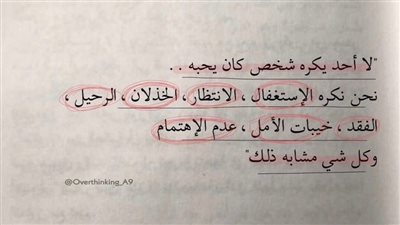 "لا أحد يكره شخص كان يحبه . .
نحن نكره الإستغفال ، الانتظار ، الخذلان ، الرحيل ،
الفقد ، خيبات الأمل ، عدم الإهتمام
وكل شي مشابه ذلك"
@Overthinking_A9